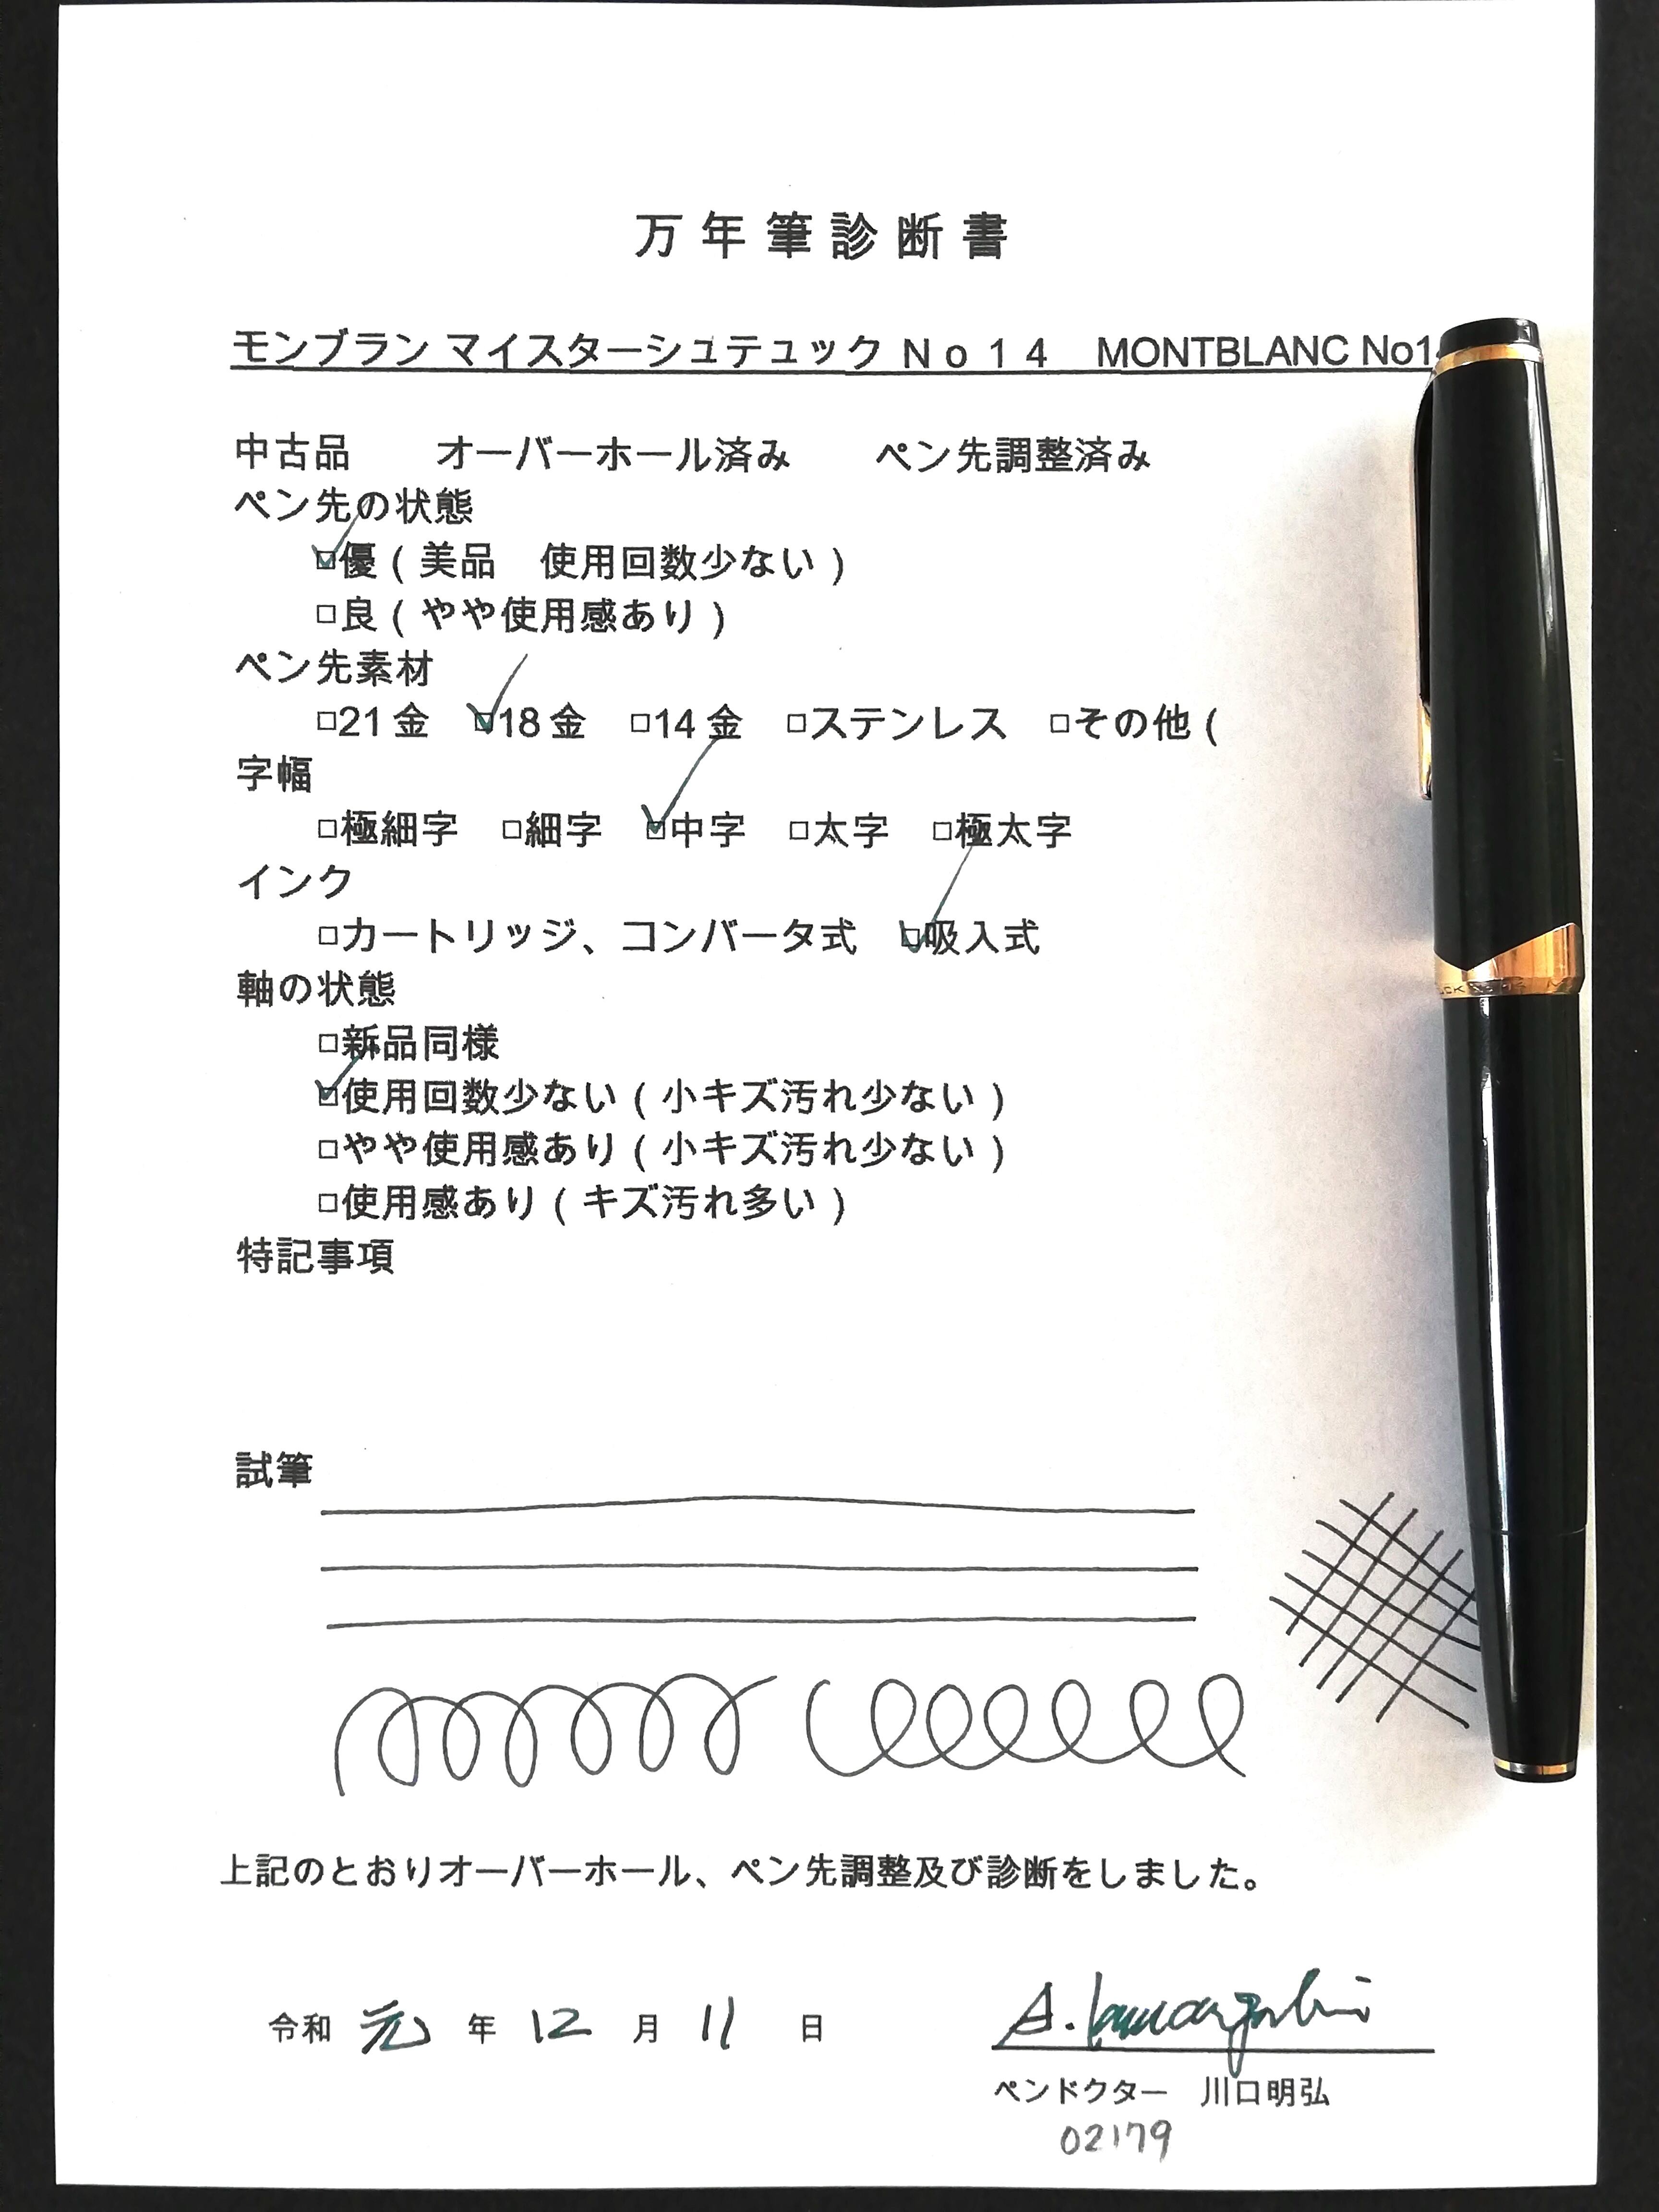 万年筆診断書
モンブラン マイスターシュテュック No14 MONTBLANC No1
中古品 オーバーホール済み ペン先調整済み
ペン先の状態
☑優(美品 使用回数少ない)
□良(やや使用感あり)
ペン先素材
□21金 ☑18金 □14金 □ステンレス □その他(
字幅
□極細字 □細字 ☑中字 □太字 □極太字
インク
□カートリッジ、コンバータ式 ☑吸入式
軸の状態
□新品同様
☑使用回数少ない(小キズ汚れ少ない)
□やや使用感あり(小キズ汚れ少ない)
□使用感あり(キズ汚れ多い)
特記事項
試筆
上記のとおりオーバーホール、ペン先調整及び診断をしました。
令和 元 年 12 月 11 日
ペンドクター 川口明弘
02179